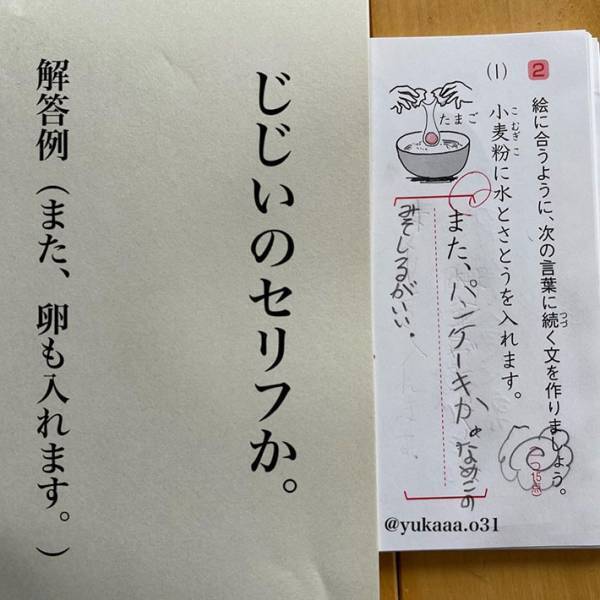 2
絵に合うように、次の言葉に続く文を作りましょう。
つづ
一つ15点
(1)
小麦粉に水とさとうを入れます。
こむぎこ
たまご
また、パンケーキか。なめこの
みそしるがいい。
@yukaaa.o31
じじいのセリフか。
解答例（また、卵も入れます。）